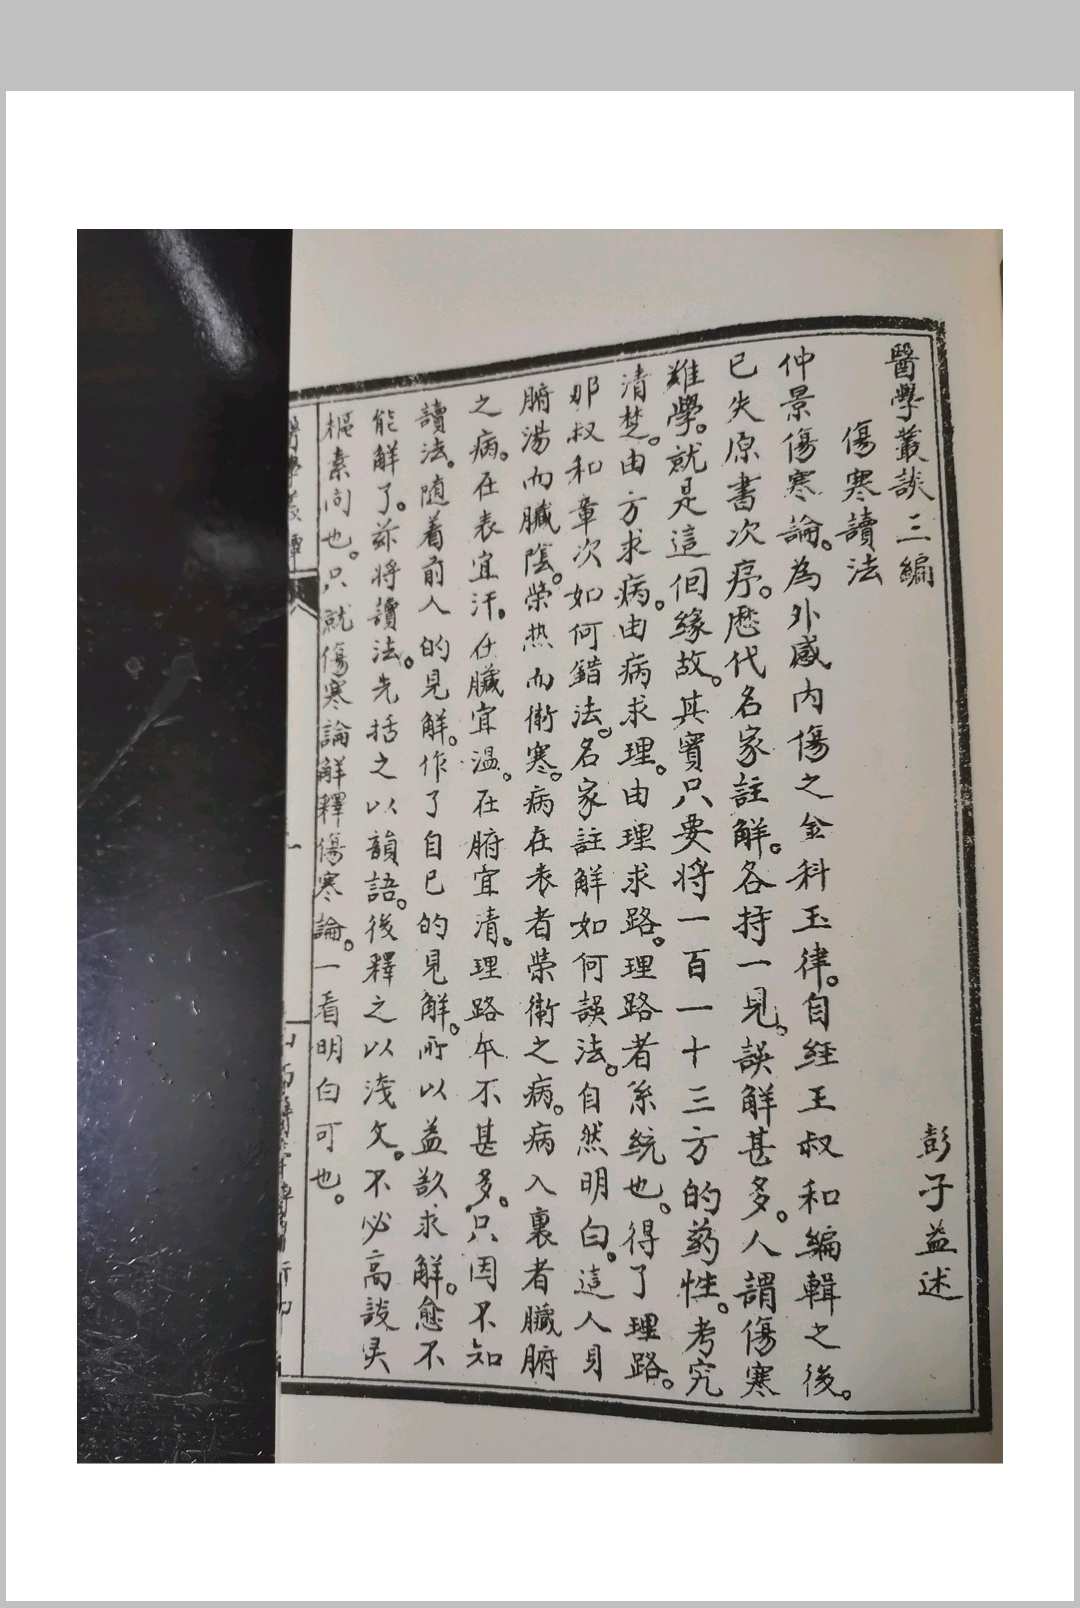 醫學叢談三編
傷寒讀法
彭子益述
仲景傷寒論。為外感內傷之金科玉律。自經王叔和編輯之後。
已失原書次序。歷代名家註解。各持一見。誤解甚多。人謂傷寒
難學。就是這個緣故。其實只要將一百一十三方的葯性。考究
清楚。由方求病。由病求理。由理求路。理路者系統也。得了理路。
那叔和章次如何錯法。名家註解如何誤法。自然明白。這人身
腑湯而臟陰。榮热而衛寒。病在表者榮衛之病。病入裏者臟腑
之病。在表宜汗。在臟宜温。在腑宜清。理路本不甚多。只因不知
讀法。随着前人的見解。作了自己的見解。所以益欲求解。愈不
能解了。茲將讀法。先括之以韻語。後釋之以淺文。不必高談灵
樞素问也。只就傷寒論解釋傷寒論。一看明白可也。